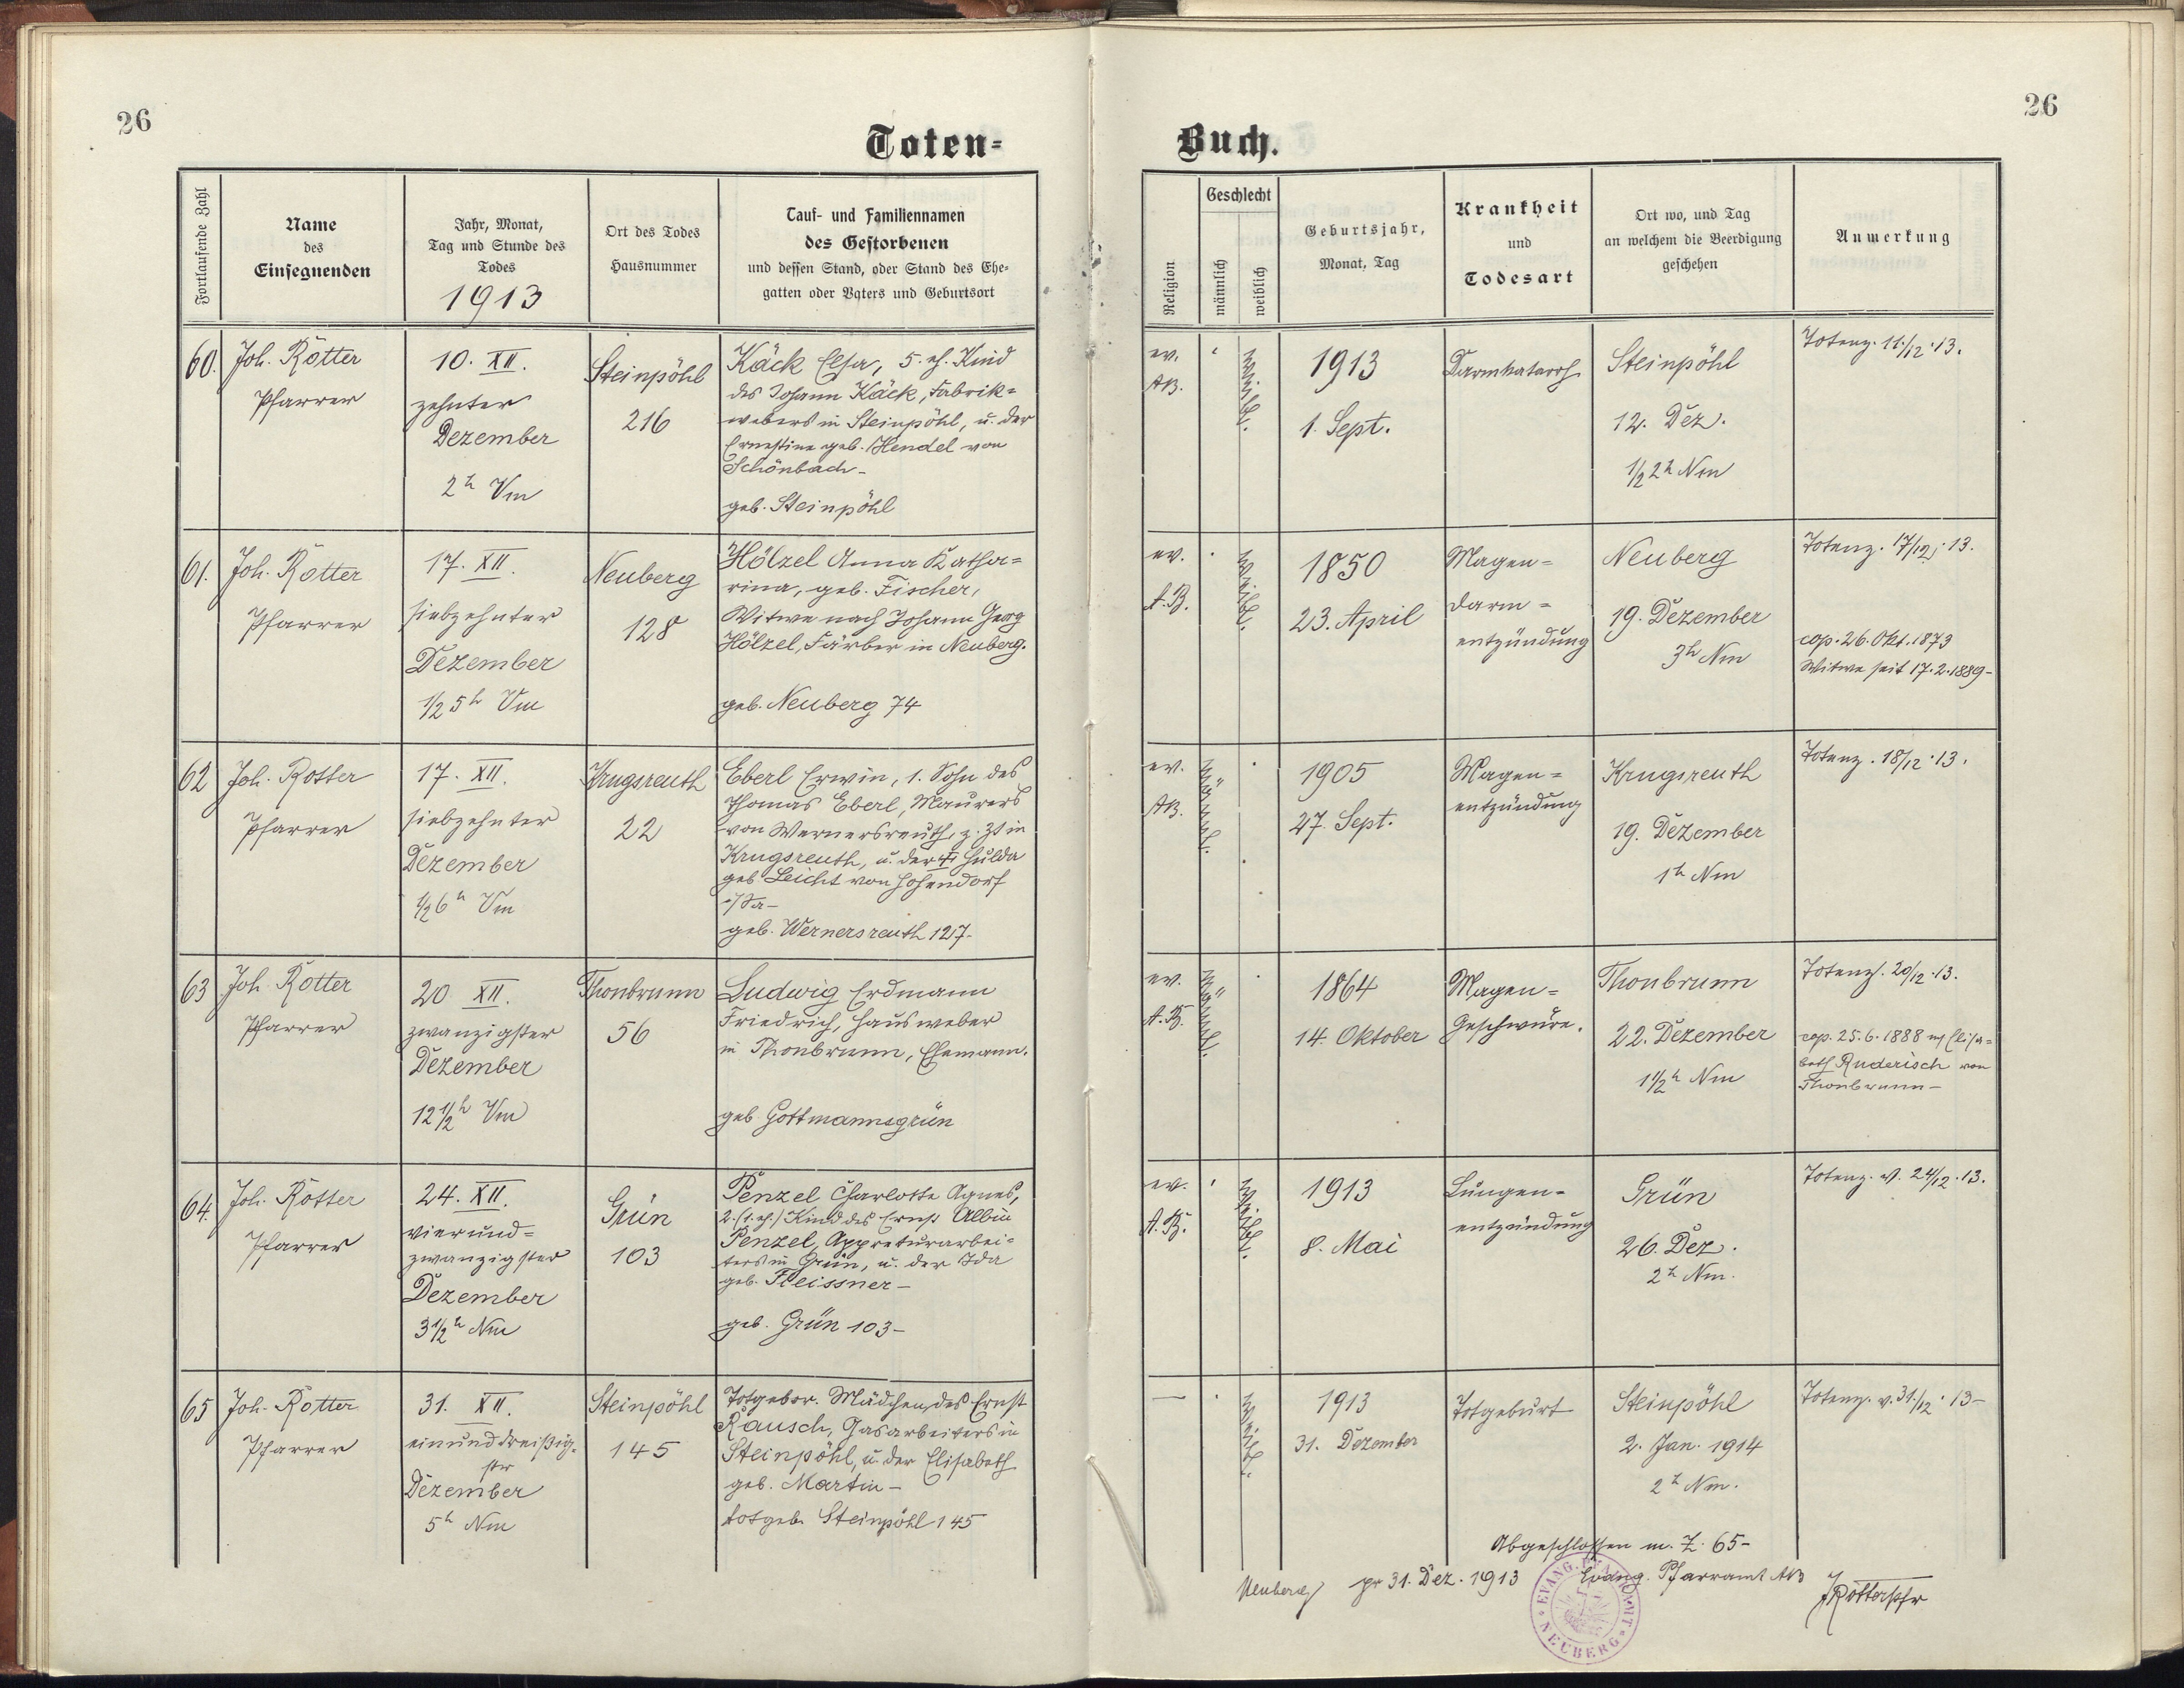 26
Toten-
Fortlaufende Zahl
Name
des
Einsegnenden
Jahr, Monat,
Tag und Stunde des
Todes
1913
Ort des Todes
Hausnummer
Tauf- und Familiennamen
des Gestorbenen
und dessen Stand, oder Stand des Ehe-
gatten oder Vaters und Geburtsort
60.
Joh. Rotter
Pfarrer
10. XII.
zehnter
Dezember
2h Vm
Steinpöhl
216
Käck Elsa, 5. eh. Kind
des Johann Käck, Fabrik-
webers in Steinpöhl, u. der
Ernestine geb. Hendel von
Schönbach-
geb. Steinpöhl
61.
Joh. Rotter
Pfarrer
17. XII.
siebzehnter
Dezember
1/2 5h Vm
Neuberg
128
Hölzel Anna Katha-
rina, geb. Fischer,
Witwe nach Johann Georg
Hölzel, Färber in Neuberg.
geb. Neuberg 74
62
Joh. Rotter
Pfarrer
17. XII.
siebzehnter
Dezember
1/2 6h Vm
Krugsreuth
22
Eberl Erwin, 1. Sohn des
Thomas Eberl, Maurers
von Wernersreuth, z. Zt in
Krugsreuth, u. der Hulda
geb Leicht von Hohendorf
i/Sa-
geb. Wernersreuth 127-
63
Joh. Rotter
Pfarrer
20 XII.
zwanzigster
Dezember
12 1/2h Vm
Thonbrunn
56
Ludwig Erdmann
Friedrich, Hausweber
in Thonbrunn, Ehemann.
geb Gottmannsgrün
64.
Joh. Rotter
Pfarrer
24. XII.
vierund-
zwanzigster
Dezember
3 1/2h Nm
Grün
103
Penzel Charlotte Agnes,
2. (1. eh.) Kind des Ernst Albin
Penzel, Appreturarbei-
ters in Grün, u. der Ida
geb. Fleissner-
geb. Grün 103-
65
Joh. Rotter
Pfarrer
31. XII.
einunddreißig-
ster
Dezember
5h Nm
Steinpöhl
145
Totgebor. Mädchen des Ernst
Rausch, Gasarbeiters in
Steinpöhl, u. der Elisabeth
geb. Martin-
totgeb. Steinpöhl 145
26
Buch.
Religion
Geschlecht
männlich
weiblich
Geburtsjahr,
Monat, Tag
Krankheit
und
Todesart
Ort wo, und Tag
an welchem die Beerdigung
geschehen
Anmerkung
ev.
AB.
weibl.
1913
1. Sept.
Darmkatarrh
Steinpöhl
12. Dez.
1/2 2h Nm
Totenz. 11/12.13.
ev.
A.B.
weibl.
1850
23. April
Magen-
darm-
entzündung
Neuberg
19. Dezember
3h Nm
Totenz. 17/12.13.
cop. 26. Okt. 1873
Witwe seit 17.2.1889-
ev.
AB.
männl.
1905
27. Sept.
Magen-
entzündung
Krugsreuth
19. Dezember
1h Nm
Totenz. 18/12.13.
ev.
A.B.
männl.
1864
14. Oktober
Magen-
Geschwüre.
Thonbrunn
22. Dezember
1 1/2h Nm
Totenz. 20/12.13.
cop. 25.6.1888 m/ Elisa-
beth Ruderisch von
Thonbrunn-
ev.
A.B.
weibl.
1913
8. Mai
Lungen-
entzündung
Grün
26. Dez.
2h Nm.
Totenz. v. 24/12.13.
—
weibl.
1913
31. Dezember
Totgeburt
Steinpöhl
2. Jan. 1914
2h Nm.
Totenz. v. 31./12.13-
Abgeschlossen m. Z. 65-
Neuberg pr 31. Dez. 1913 Evang. Pfarramt AB
JRotterPfr
EVANG. PFARRAMT
NEUBERG